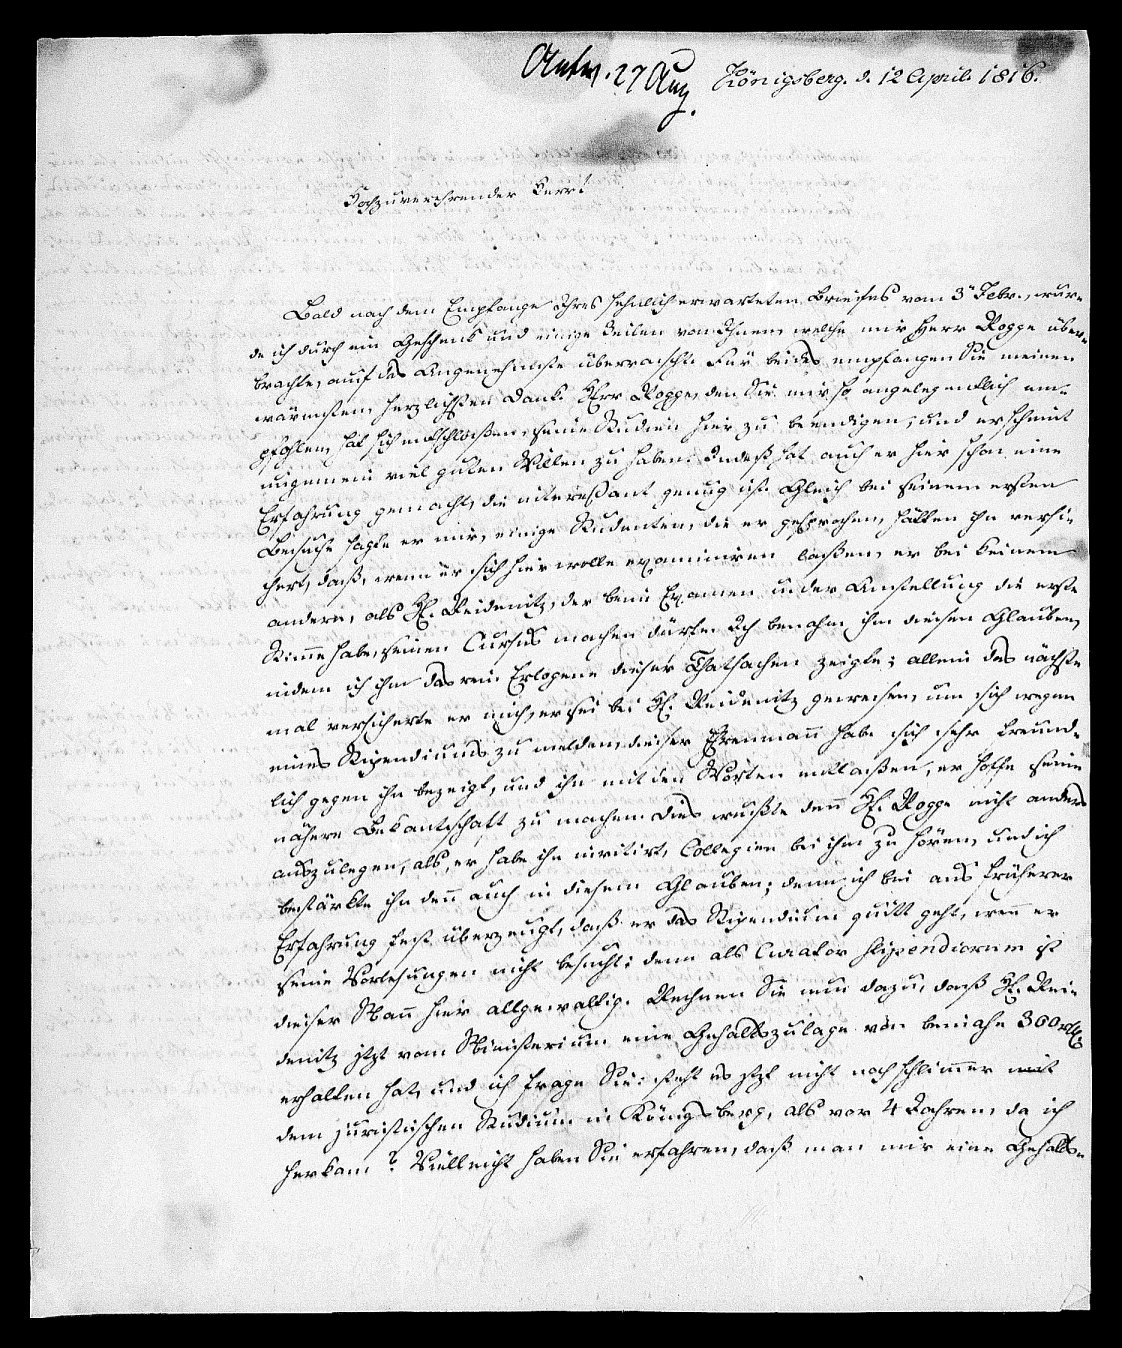 Antw. 27 Aug.
Königsberg. d. 12 April. 1816.
Hochzuverehrender Herr!
Bald nach dem Empfange Ihres sehnlich erwarteten Briefes vom 3t Febr., wur-
de ich durch ein Geschenk und einige Zeilen von Ihnen, welche mir Herr Rogge über-
brachte, auf das Angenehmste überrascht. Für beides empfangen Sie meinen
wärmsten, herzlichsten Dank. Herr Rogge, den Sie mir so angelegentlich em-
pfohlen, hat sich entschlossen, seine Studien hier zu beendigen, und er scheint
ungemein viel guten Willen zu haben. Indeß hat auch er hier schon eine
Erfahrung gemacht, die interessant genug ist. Gleich bei seinem ersten
Besuche sagte er mir, einige Studenten, die er gesprochen, hätten ihn versi-
chert, daß, wenn er sich hier wolle examiniren laßen, er bei keinem
andern, als H. Reidenitz, der beim Examen u. der Anstellung die erste
Stimme habe, seinen Cursus machen dürfe. Ich benahm ihm diesen Glauben,
indem ich ihm das rein Erlogene dieser Thatsachen zeigte; allein das nächste
mal versicherte er mich, er sei bei H. Reidenitz gewesen, um sich wegen
eines Stipendiums zu melden, dieser Ehrenmann habe sich sehr freund-
lich gegen ihn bezeigt, und ihn mit den Worten entlaßen, er hoffe seine
nähere Bekantschaft zu machen. Dies wußte denn H. Rogge nicht anders
auszulegen, als, er habe ihn invitirt, Collegien bei ihm zu hören, und ich
bestärkte ihn denn auch in diesem Glauben; denn ich bin aus früherer
Erfahrung fest überzeugt, daß er das Stipendium quitt geht, wenn er
seine Vorlesungen nicht besucht; denn als Curator stipendiorum ist
dieser Mann hier allgewaltig. Rechnen Sie nun dazu, daß H. Rei-
denitz jetzt vom Ministerium eine Gehaltszulage von beinahe 360 rth.
erhalten hat, und ich frage Sie: steht es jetzt nicht noch schlimmer mit
dem juristischen Studium in Königsberg, als vor 4 Jahren, da ich
herkam? Vielleicht haben Sie erfahren, daß man mir eine Gehalts-